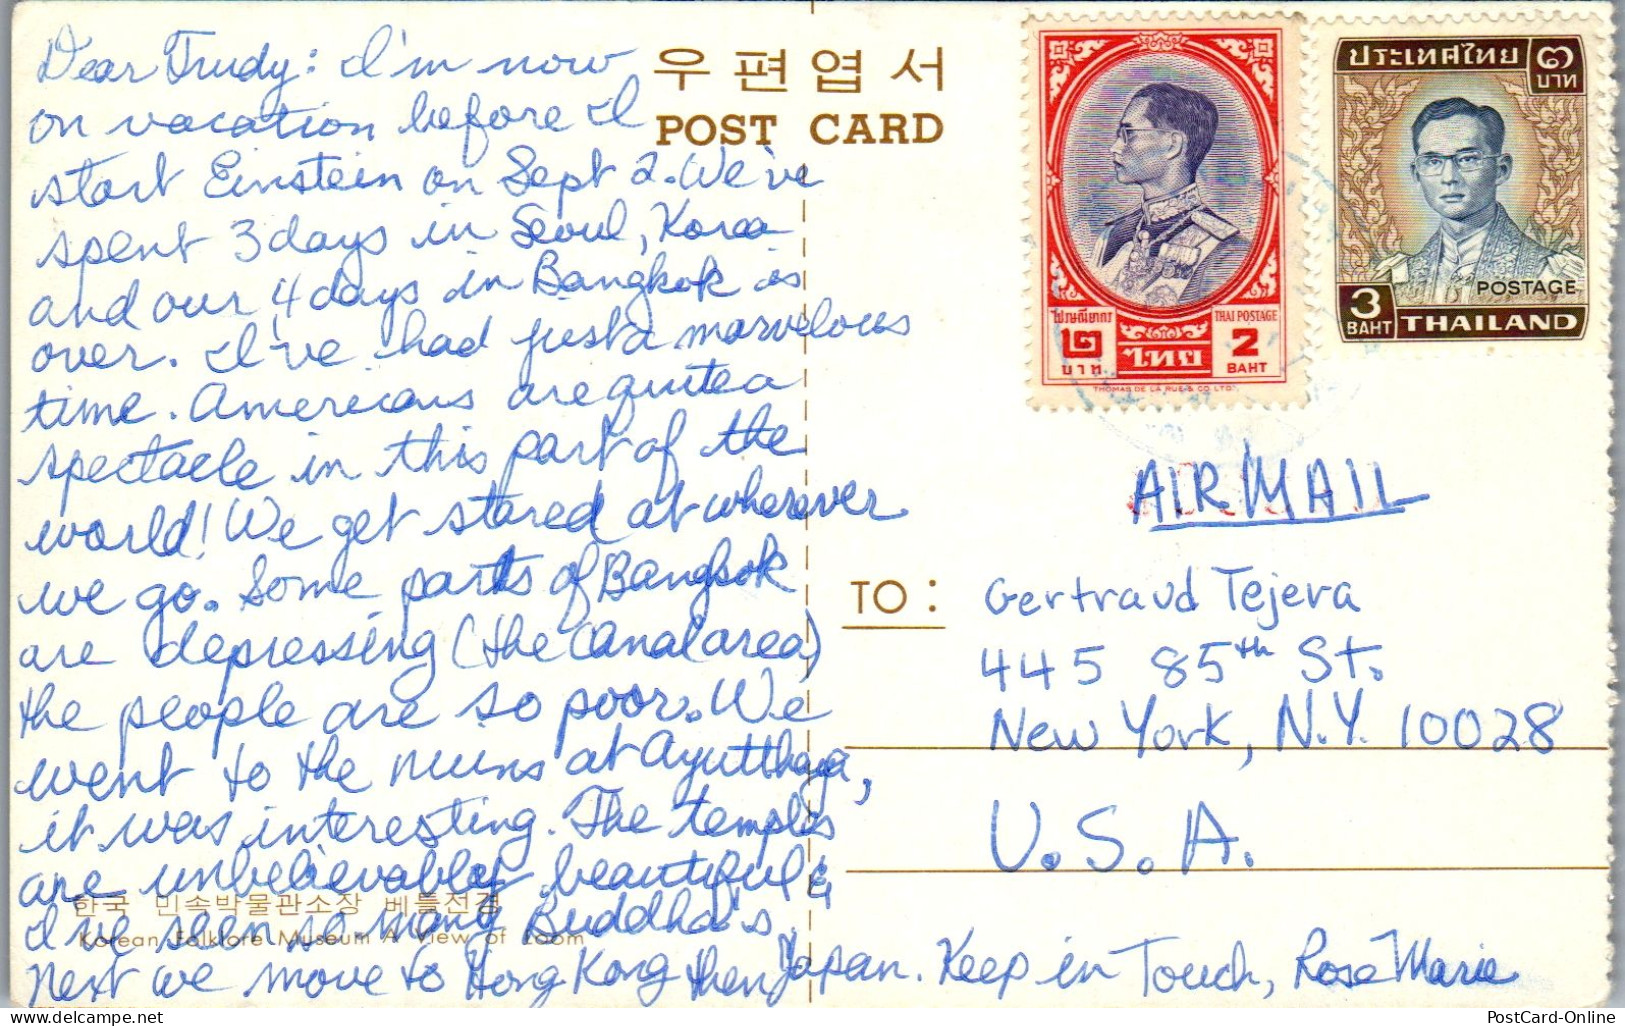 Dear Trudy: I'm now
on vacation before I
start Einstein on Sept 2. We've
spent 3 days in Seoul, Korea
and our 4 days in Bangkok is
over. I've had just a marvelous
time. Americans are quite a
spectacle in this part of the
world! We get stared at wherever
we go. Some parts of Bangkok
are depressing (the canal area)
the people are so poor. We
went to the ruins at Ayutthaya,
it was interesting. The temples
are unbelievably beautiful &
I've seen so many Buddha's.
Next we move to Hong Kong then Japan. Keep in Touch, Rose Marie
한국 민속박물관소장 베틀전경
Korean Folklore Museum A View of Loom
우편엽서
POST CARD
ไปรษณียากร
THAI POSTAGE
๒
บาท
ไทย
2
BAHT
THOMAS DE LA RUE & CO LTD.
ประเทศไทย
๓
บาท
POSTAGE
3
BAHT
THAILAND
AIR MAIL
TO:
Gertraud Tejera
445 85th St.
New York, N.Y. 10028
U.S.A.
PostCard-Online